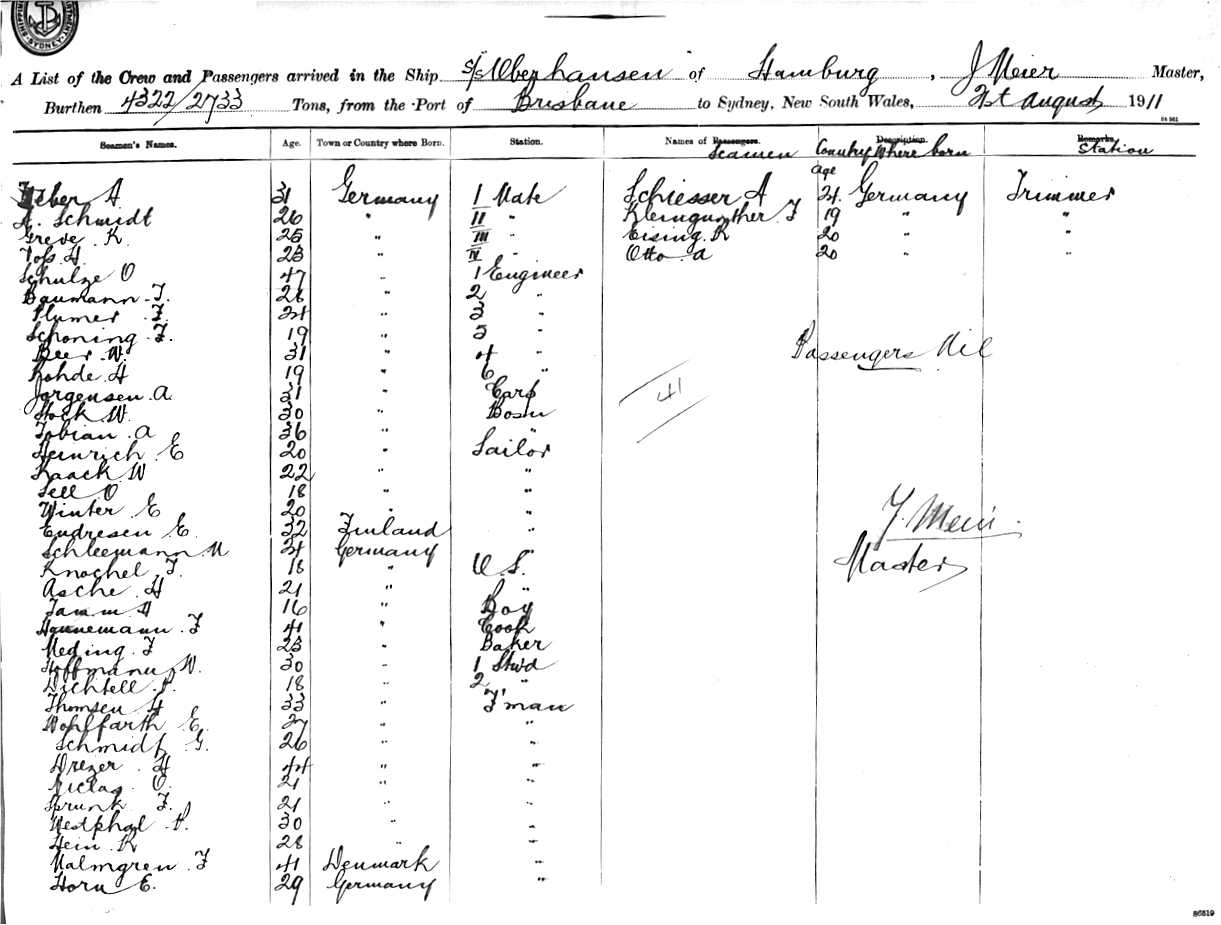 SHIPPING SYDNEY
A List of the Crew and Passengers arrived in the Ship S/S Oberhausen of Hamburg, J Meier Master,
Burthen 4322/2733 Tons, from the Port of Brisbane to Sydney, New South Wales, 21st August 1911
Seamen's Names. Age. Town or Country where Born. Station. Names of Passengers. Seamen Description. Country Where born Remarks. Station
Age
Weber A 31 Germany I Mate Schiesser A 21. Germany Trimmer
A. Schmidt 26 " II " Kleingunther F 19 " "
Greve K. 25 " III " Eising K 20 " "
Voss H. 23 " IV " Otto a 20 " "
Schulze O 47 " 1 Engineer
Baumann F. 28 " 2 "
Plumer F. 24 " 3 "
Schoning F. 19 " 5 "
Beer W. 31 " 4 " Passengers Nil
Rohde H 19 " 6 "
Jorgensen A. 31 " Carp 41
Stock W. 30 " Bosn
Tobian a 36 "
Heinrich E 20 " Sailor
Kaack W 22 " "
Sell O 18 " "
Winter E 20 " " J. Meier
Endresen E. 32 Finland " Master
Schleemann M 21 Germany
Knochel F. 18 " O.S.
Asche H 21 "
Tamm H 16 " Boy
Hannemann F 41 " Cook
Meding F 23 " Baker
Hoffmann W. 30 " 1 Stwd
Dichtell P. 18 " 2 "
Thomsen H 33 " F'man
Wohlfarth E. 27 " "
Schmidt G. 26 " "
Drezer H 44 " "
Niclas O. 21 " "
Sprunk F. 21 " "
Westphal P. 30 " "
Hein K 28 " "
Malmgren F 41 Denmark "
Horn E. 29 Germany "
86519